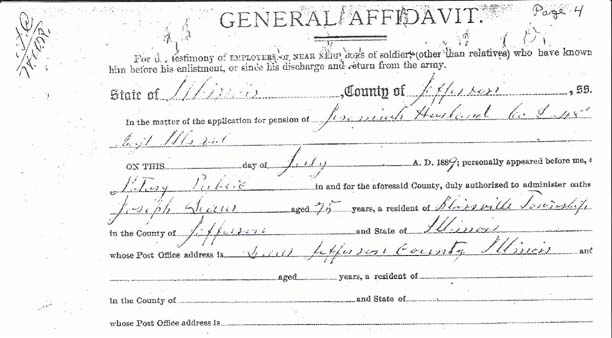 Page 4
GENERAL AFFIDAVIT.
For the testimony of EMPLOYERS OR NEAR NEIGHBORS of soldier, (other than relatives) who have known
him before his enlistment, or since his discharge and return from the army.
State of Illinois, County of Jefferson, SS.
In the matter of the application for pension of Jeremiah Co
ON THIS day of July A. D. 1889; personally appeared before me, a
Notary Public in and for the aforesaid County, duly authorized to administer oaths
Joseph aged 75 years, a resident of Township
in the County of Jefferson and State of Illinois
whose Post Office address is Jefferson County Illinois and
aged years, a resident of
in the County of and State of
whose Post Office address is